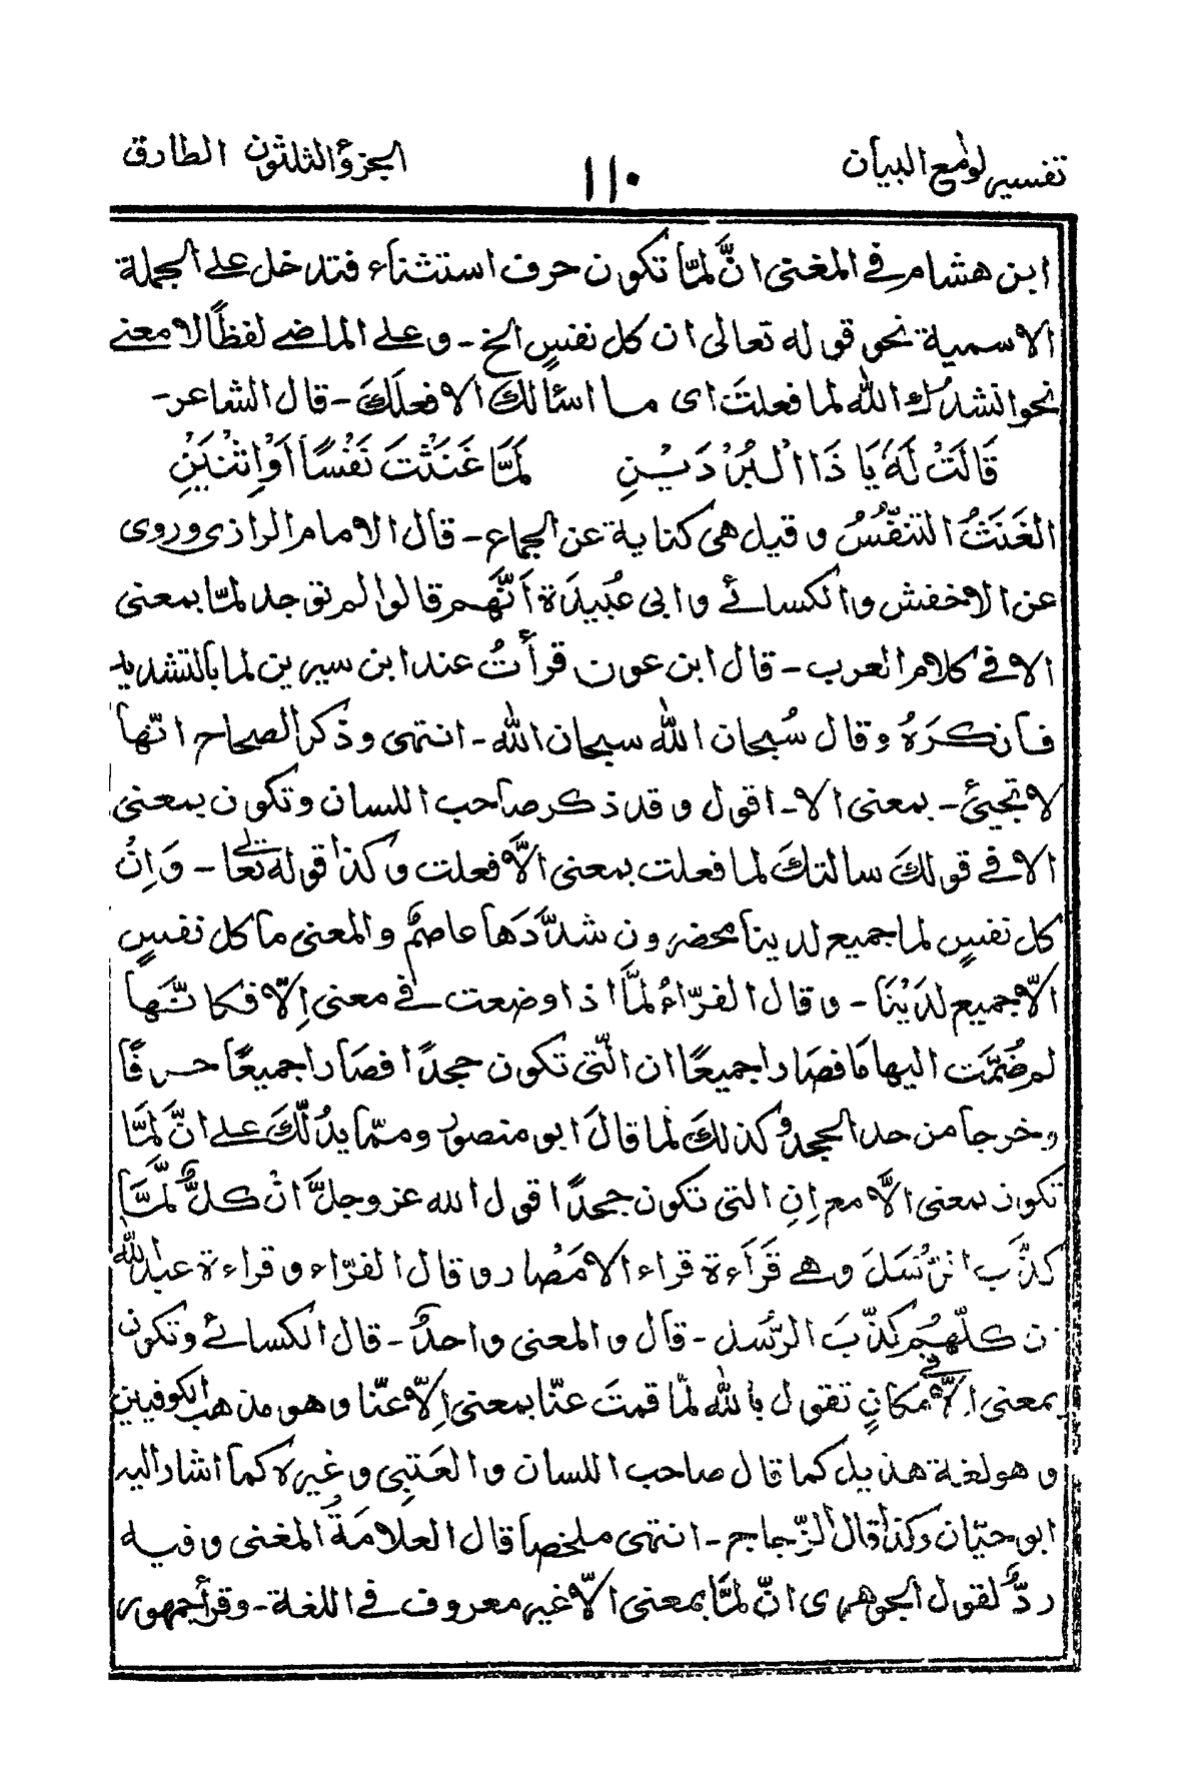 تفسير لوامع البيان
١١٠
الجزؤ الثلثون الطارق
ابن هشام في المغنى انَّ لمّا تكون حرف استثناء فتدخل على الجملة
الاسمية نحو قوله تعالى ان كل نفسٍ الخ - وعلى الماضي لفظًا لا معنے
نحو انشدك الله لما فعلتَ اى ما اسألك الا فعلَكَ - قال الشاعر -
قَالَتْ لَهُ يَا ذَا الْبُرْدَيْنِ لَمَّا غَنَثْتَ نَفْسًا أَوْ اِثْنَيْنِ
الغَنَثُ التنفّسُ وقيل هى كناية عن الجماع - قال الامام الرازى وروى
عن الاخفش والكسائے وابى عُبيدَة أنَّهم قالوا لم توجد لمّا بمعنى
الا في كلام العرب - قال ابن عون قرأتُ عند ابن سيرين لما بالتشديد
فأنكرَهُ وقال سُبحان الله سبحان الله - انتهى وذكر الصحاح انّها
لا تجيئ - بمعنى الا - اقول وقد ذكر صاحب اللسان وتكون بمعنى
الا في قولك سالتكَ لما فعلت بمعنى الَّا فعلت وكذا قوله تعالى - وَاِنْ
كل نفسٍ لما جميع لدينا محضرون شدَّدَها عاصمٌ والمعنى ما كل نفسٍ
الَّا جميع لدَيْنَا - وقال الفرّاءُ لمَّا اذا وضعت في معنى اِلّا فكانَّها
لم ضُمَّت اليها مَا فصَارا جميعًا ان الّتى تكون جحدًا فصَارا جميعًا حرفًا
وخرجا من حد الجحد وكذلكَ لما قالَ ابو منصور وممّا يدُلّكَ على انَّ لمَّا
تكون بمعنى الَّا مع اِن التى تكون جحدًا قول الله عز وجلَّ انْ كلٌّ لمَّا
كذَّبَ الرُّسَلَ وهے قَرَأءة قراء الامَصْار وقال الفرّاء وقراءة عبد الله
ن كلّهُم كذّبَ الرُّسل - قال والمعنى واحدٌ - قال الكسائے وتكون
بمعنى الّا في مكانٍ تقول بالله لمّا قمتَ عنّا بمعنى اِلّا عنّا وهو مذهب الكوفيين
وهو لغة هذيل كما قال صاحب اللسان والعَتبِى وغيره كما اشار اليه
ابو حيّان وكذا قال الزّجاج - انتهى ملخصا قال العلامَةُ المغنى وفيه
ردٌّ لقول الجوهرى انّ لمَّا بمعنى الّا غير معروف في اللغة - وقرأ جمهور